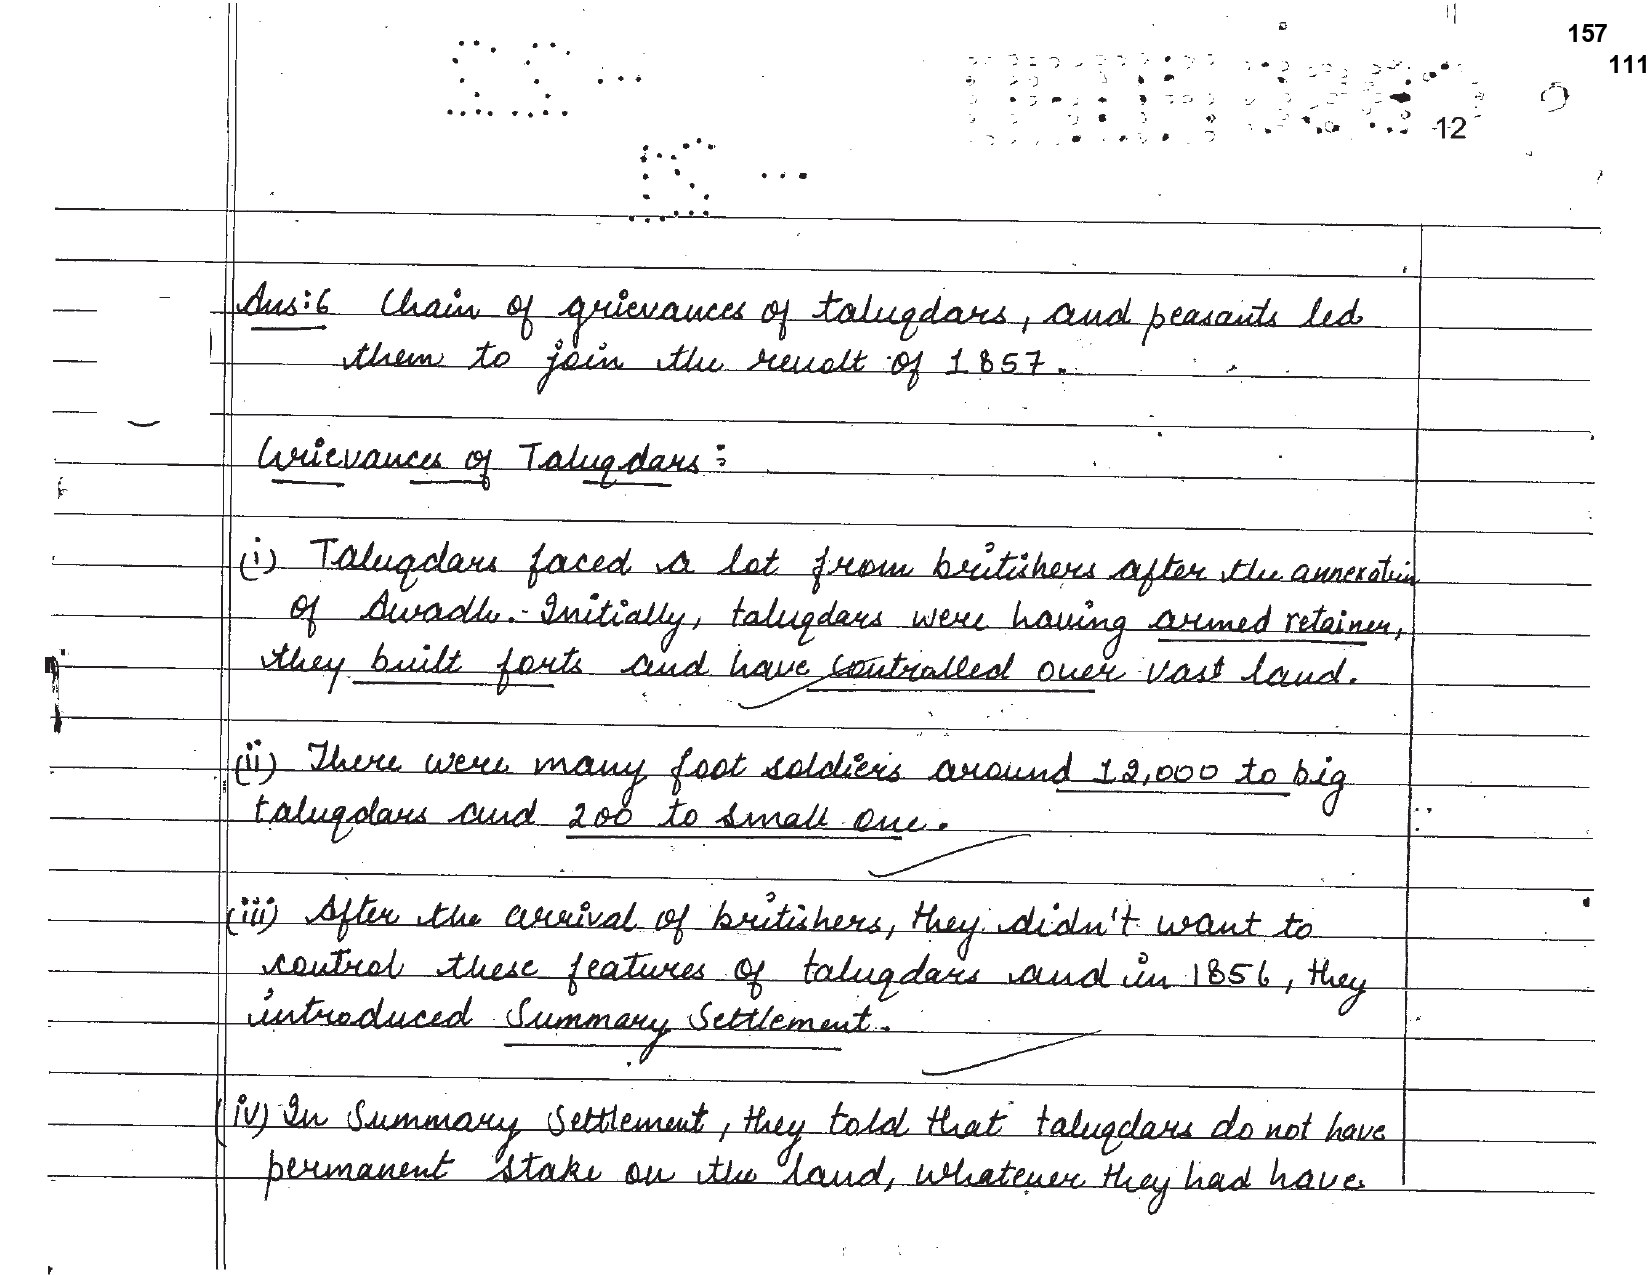 157
111
12
Ans:6 Chain of grievances of taluqdars, and peasants led
them to join the revolt of 1857.
Grievances of Taluqdars:
(i) Taluqdars faced a lot from britishers after the annexation
of Awadh. Initially, taluqdars were having armed retainer,
they built forts and have controlled over vast land.
(ii) There were many foot soldiers around 12,000 to big
taluqdars and 200 to small one.
(iii) After the arrival of britishers, they didn't want to
control these features of taluqdars and in 1856, they
introduced Summary Settlement.
(iv) In Summary Settlement, they told that taluqdars do not have
permanent stake on the land, whatever they had have